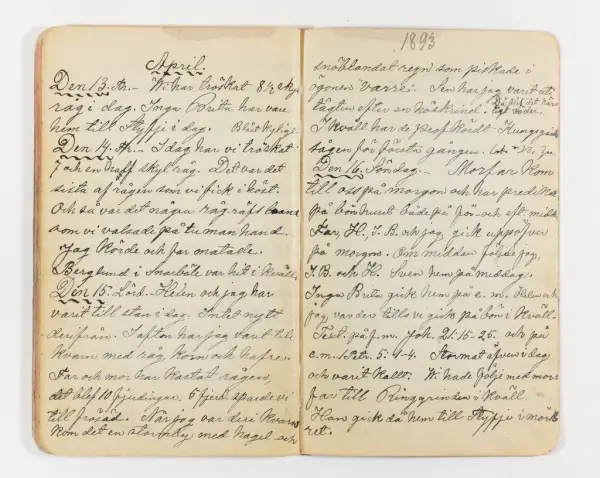 April.
Den 13. Th. - Vi har tröskat 8 1/2 skyl
råg i dag. Inga Brita har vare
hem till Styfje i dag. Blåst kyligt.
Den 14. Fr. - I dag har vi tröskat
7 och en half skyl råg. Det var det
sista af rågen som vi fick i höst.
Och så var det några råg räfs
som vi valsade på tu man hand.
Jag körde och far matade.
Berglund i Snarbäte var hit i kväll.
Den 15. Lörd. - Helen och jag har
varit till stan i dag. Intet nytt
derifrån. I afton har jag varit till
kvarn med råg, korn och hafre.
Far och mor har kastat rågen,
det blef 10 fjerdingar. 6 fjerd. sparde vi
till frösäd. När jag var der i kvarn
kom det en stormby med hagel och
1893
snöblandat regn som piskade i
ögonen värre. Sen har jag varit uti
tägten efter en höskrind. Då blef det känsligt väder.
I kväll har de profkördt Kungs
sågen för första gången.
Den 16. Söndag. - Morfar kom
till oss på morgon och har predikat
på bönhuset både på för- och eft. midda.
Far, H. J. B. och jag gick upp öfver
på morgon. Om middan följde jag,
J. B. och H. Sven hem på middag.
Inga Brita gick hem på e. m. Helen och
jag var der till vi gick på bön i kväll.
Text: på f. m. Joh. 21: 15-25. och på
e. m. 1 Petr. 5: 1-4. Stormat äfven i dag
och varit kallt. Vi hade följe med mor-
far till Ringgrinden i kväll.
Han gick då hem till Styfje i mörk
ret.